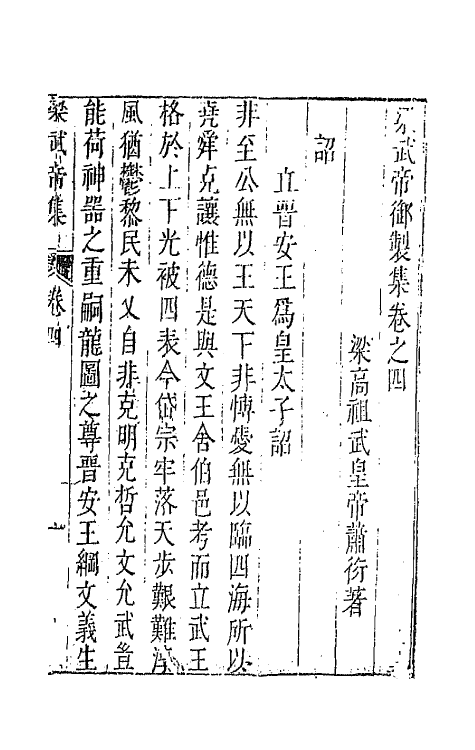 梁武帝御製集卷之四
梁高祖武皇帝蕭衍著
詔
立晋安王爲皇太子詔
非至公無以王天下非愽愛無以臨四海所以
堯舜克讓惟德是與文王舍伯邑考而立武王
格於上下光被四表今岱宗牢落天步艱難淳
風猶鬱黎民未乂自非克明克哲允文允武豈
能荷神器之重嗣龍圖之尊晋安王綱文義生
梁武帝集 卷四 一